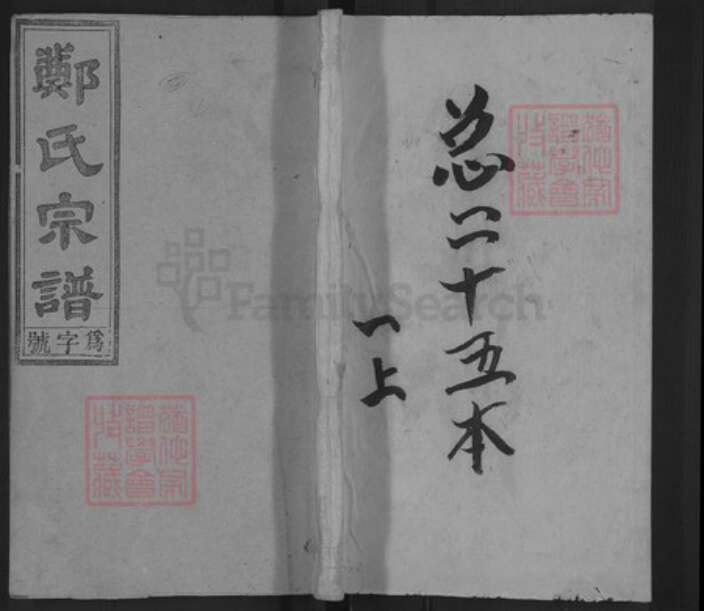 鄭氏宗譜
爲字號
总二十五本
一上
FamilySearch